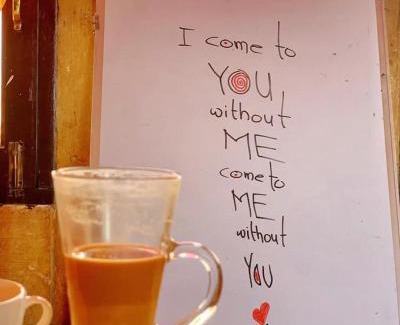 I come to
YOU
without
ME
come to
ME
without
YOU